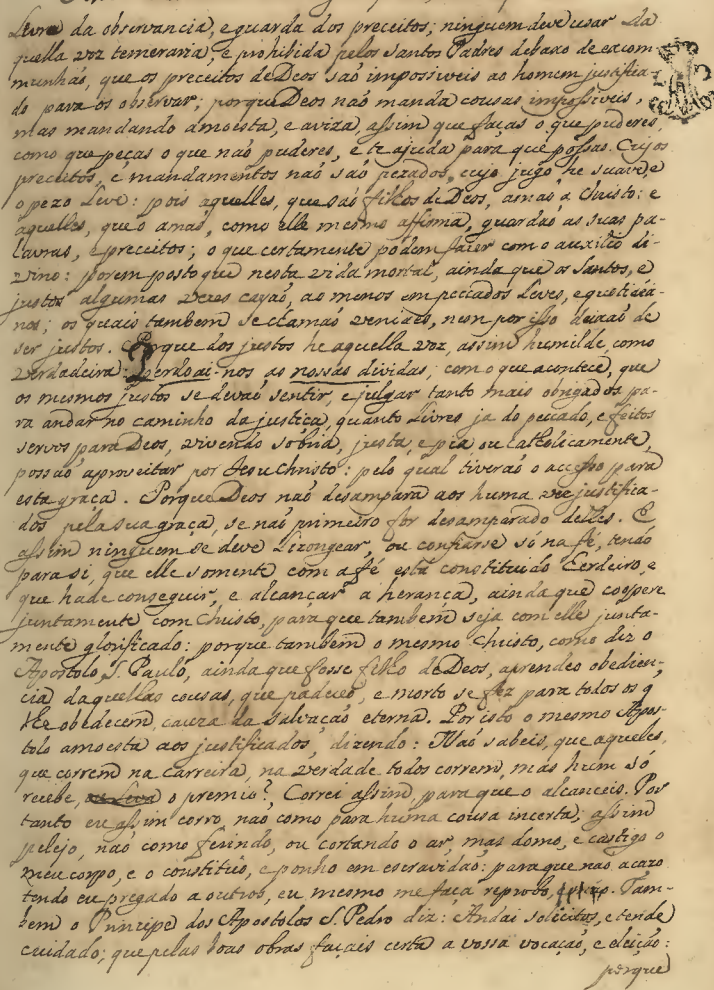 Livre da observancia, e guarda dos preceitos; ninguem deve usar da
quella voz temeraria, e prohibida pelos Santos Padres debaxo de excom-
munhaõ, que os preceitos de Deos saõ impossiveis ao homem justifica-
do para os observar; porque Deos naõ manda cousas impossiveis,
mas mandando amoesta, e aviza, assim que faças o que puderes,
como que peças o que naõ puderes, e te ajuda para que possas. Cujos
preceitos, e mandamentos naõ saõ pezados, cujo jugo he suave, e
o pezo Leve: pois aquelles, que saõ filhos de Deos, amaõ a Christo: e
aquelles, que o amaõ, como elle mesmo affirma, guardaõ as suas pa-
lavras, e preceitos; o que certamente podem fazer com o auxilio di-
vino: porem posto que nesta vida mortal, ainda que os Santos, e
justos algumas vezes cayaõ, ao menos em peccados Leves, e quotidia-
nos; os quais tambem se chamaõ veniaes, nem por isso deixaõ de
ser justos. Porque dos justos he aquella voz, assim humilde, como
verdadeira: Perdoai-nos as nossas dividas; com o que acontece, que
os mesmos justos se devaõ sentir, e julgar tanto mais obrigados pa-
ra andar no caminho da justiça, quanto Livres ja do peccado, e feitos
servos para Deos, vivendo sobria, justa, e pia, ou catholicamente,
possaõ aproveitar por Jesu Christo: pelo qual tiveraõ o accesso para
esta graça. Porque Deos naõ desampara aos huma vez justifica-
dos pela sua graça, se naõ primeiro for desamparado delles. E
assim ninguem se deve Lizongear, ou confiarse só na fé, tendo
para si, que elle somente com a fé está constituido Eerdeiro, e
que hade conseguir, e alcançar a herança, ainda que coopere
juntamente com Christo, para que tambem seja com elle junta-
mente glorificado: porque tambem o mesmo Christo, como diz o
Apostolo, S. Paulo, ainda que fosse filho de Deos, aprendeo obedien-
cia daquellas cousas, que padeceo, e morto se fez para todos os q̃
lhe obedecem, cauza da salvaçaõ eterna. Por isto o mesmo Apos-
tolo amoesta aos justificados, dizendo: Naõ sabeis, que aqueles,
que correm na carreira, na verdade todos correm, mas hum só
recebe, o premio? Correi assim, para que o alcanceis. Por
tanto eu assim corro, naõ como para huma cousa incerta; assim
pelejo, naõ como ferindo, ou cortando o ar, mas domo, e castigo o
meu corpo, e o constituo, e ponho em escravidaõ: para que naõ acazo
tendo eu pregado a outros, eu mesmo me faça reprobo. Tam-
bem o Principe dos Apostolos S. Pedro diz: Andai solicitos, e tende
cuidado; que pelas boas obras façais certa a vossa vocaçaõ, e eleiçaõ:
porque